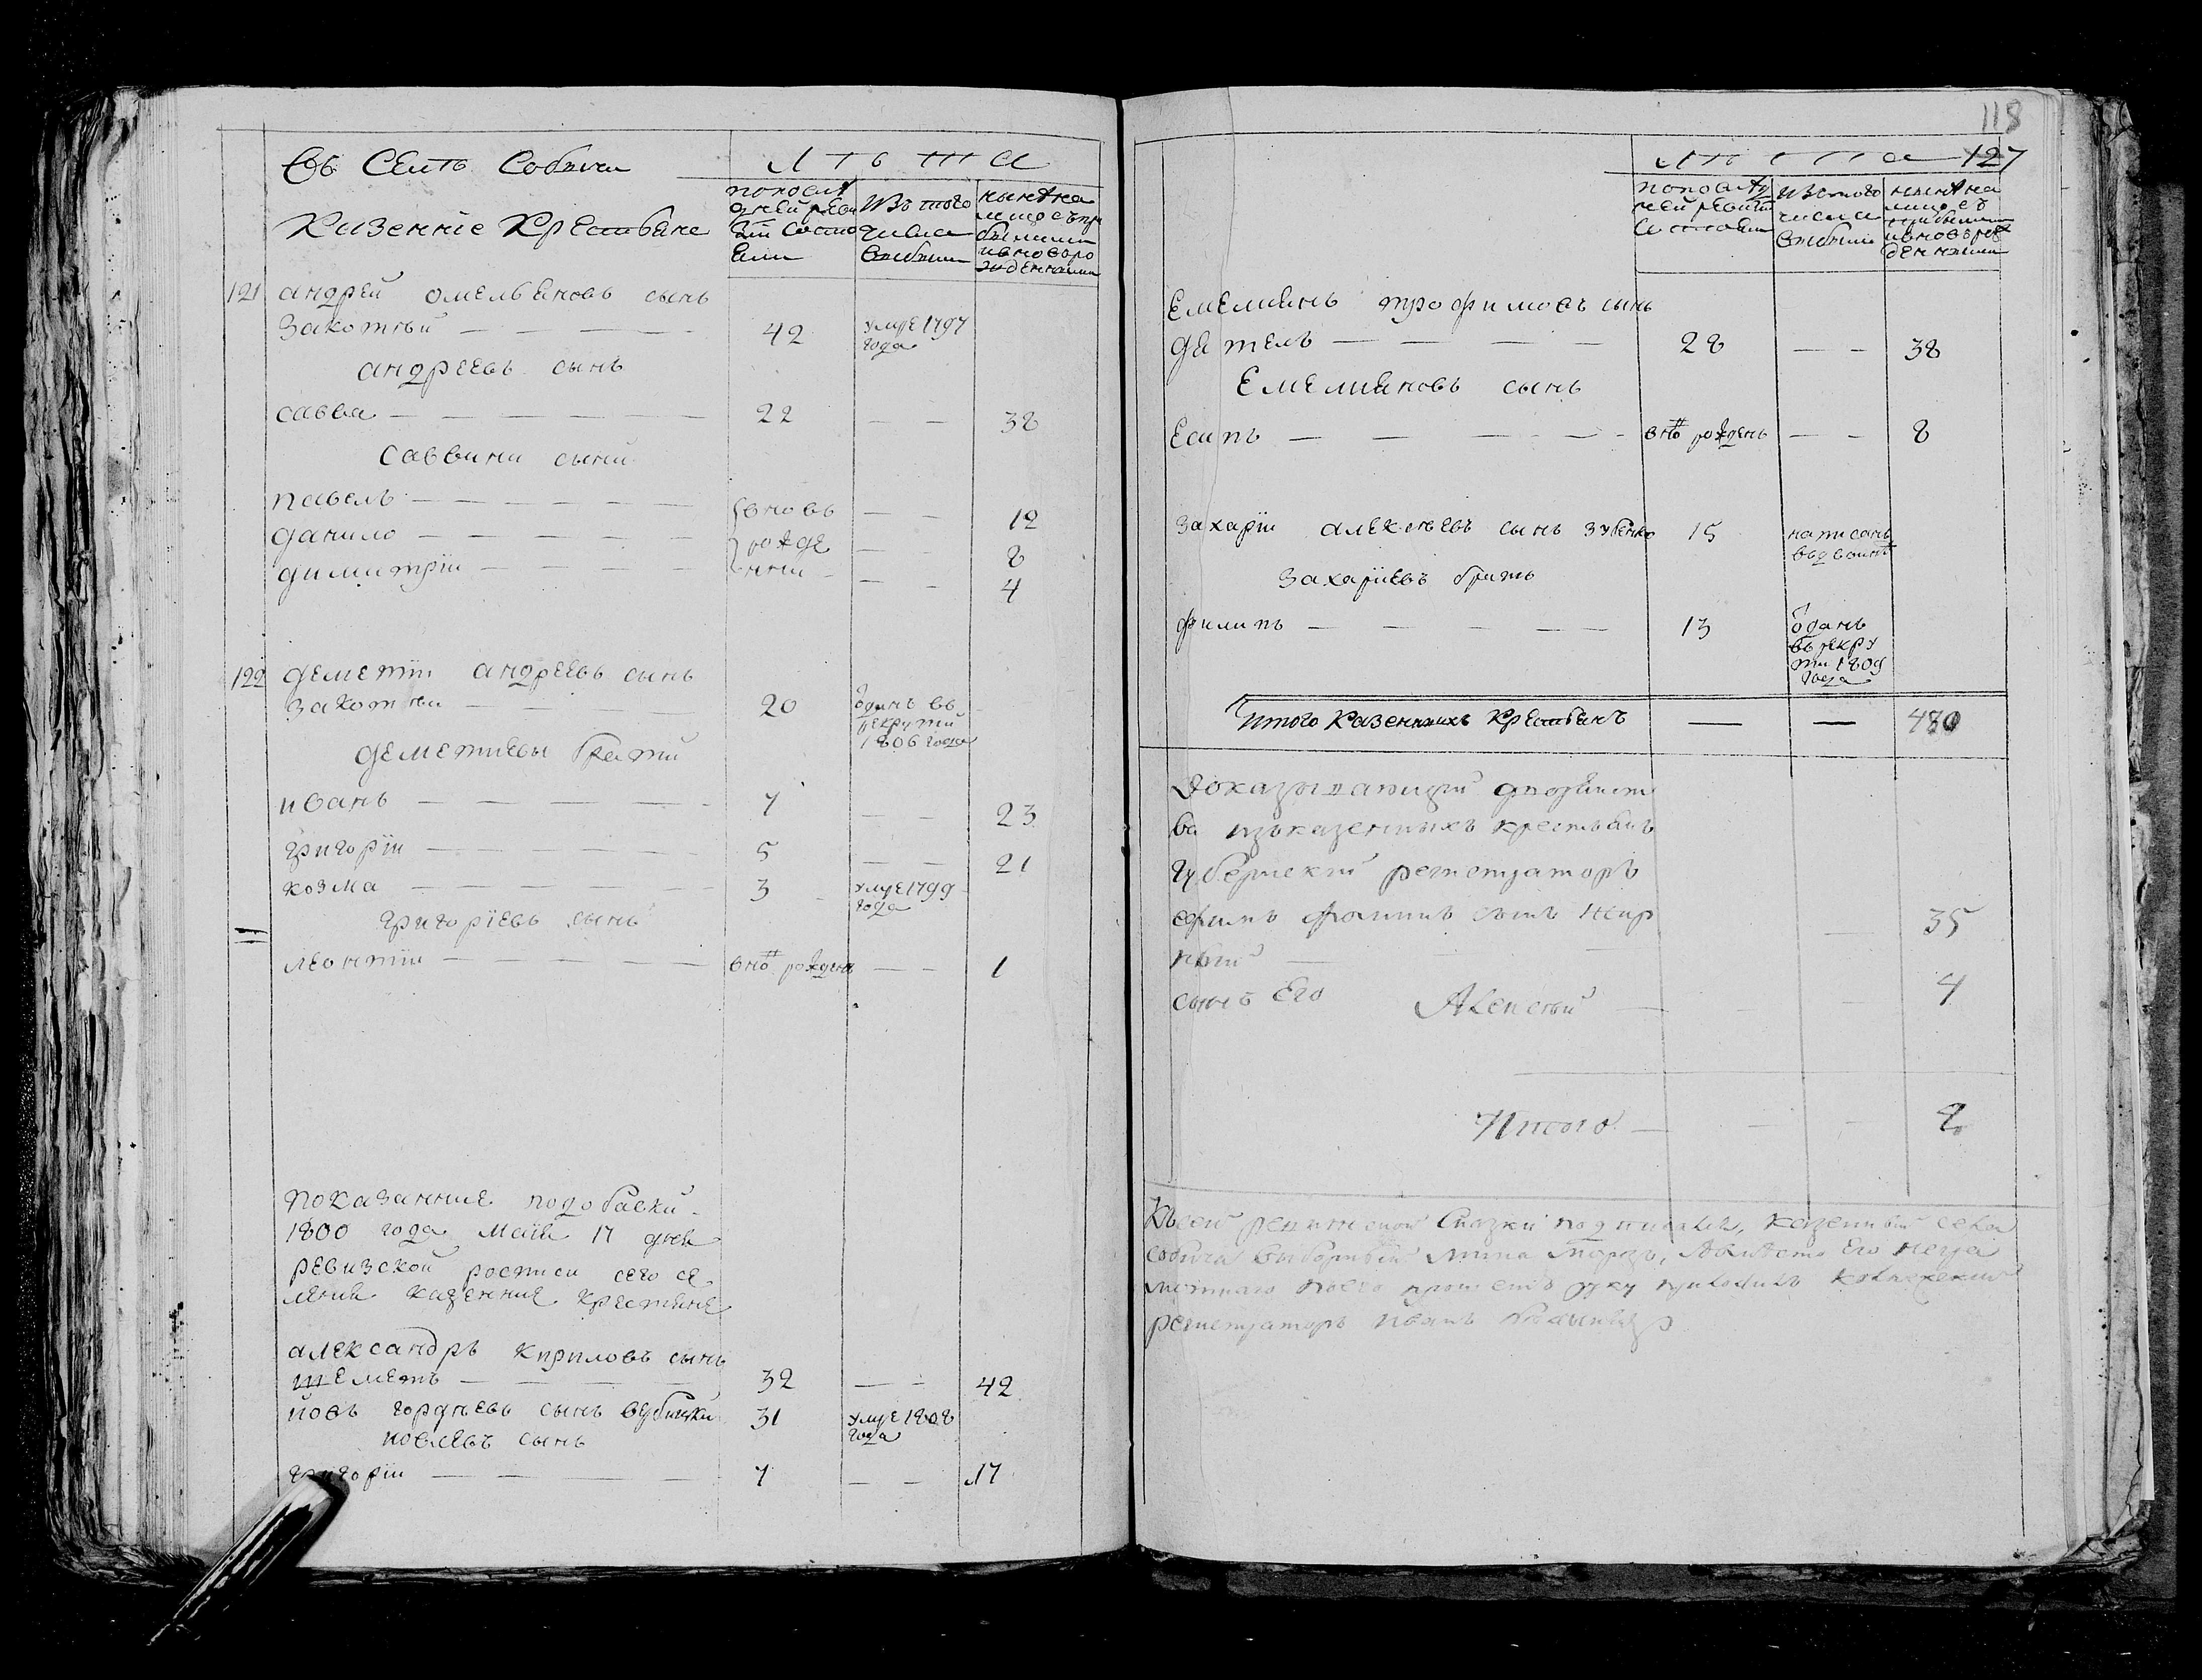 Въ Селѣ Собичи
Казенніе Крестьяне
Л Ѣ Т А
по послѣ
дней реви
зіи состо
яли
изъ того
числа
выбыли
нынѣ на
лицо съ при
былыми
и новоро
жденными
121 андрей омельяновъ сынъ
Закотній — 42 умре 1797
года
андреевъ сынъ
савва — 22 — — 38
саввини сыни
павелъ — вновь — — 12
данило — рожде — 8
димитрій — нни — — 4
122 дементій андреевъ сынъ
Закотній — 20 ѿданъ въ
рекрути
1806 года
дементиевы брати
иванъ — 7 — — 23
григорій — 5 — — 21
козма — 3 умре 1799
года
григоріевъ сынъ
леонтій — внѡ рожденъ — — 1
показанние по добавки
1800 года маія 17 дня
ревизской росписи сего се
ления казенние крестяне
александръ кириловъ сынъ
шеметъ — 32 — — 42
иовъ гордѣевъ сынъ 31 умре 1808
года
иовлевъ сынъ
григорій — 7 — — 17
118
Л Ѣ Т А 127
по послѣд
ней ревизіи
состояли
изъ того
числа
выбыли
нынѣ на
лицо съ
прибылыми
и новорож
денними
Емелиянъ трофимовъ сынъ
дятелъ — 28 — — 38
Емелияновъ сынъ
Есипъ — внѡ рожденъ — — 8
Захарій алексѣевъ сынъ зубенко 15 написанъ
въ двойнѣ
Захаріевъ братъ
филипъ — 13 ѿданъ
въ рекру
ти 1809
года
Итого Казенныхъ Крестьянъ — — 480
Доказывающій дворянст
во изъ казенныхъ крестьянъ
губернскій регистраторъ
ефимъ сынъ
— — 35
сынъ Его Алексѣй — — — 4
Итого — — — 2
Къ сей ревизской Сказки подписался, казенный села
собича выборный а вмѣсто его негра
мотнаго по его прошенію руку приложилъ колежский
регистраторъ Иванъ